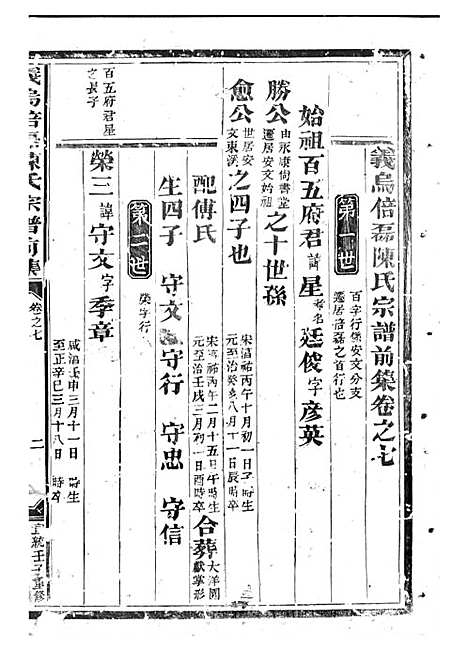 義烏倍磊陳氏宗譜前集卷之七
第一世
百字行係安文分支
遷居倍磊之首行也
始祖百五府君諱星考名廷俊字彥英
勝公由永康尚書堂遷居安文始祖之十世孫
愈公世居安文東溪之四子也
宋淳祐丙午十月初一日子時生
元至治癸亥八月十一日辰時卒
配傅氏
宋淳祐丙午二月十五日午時生
元至治壬戌三月初一日酉時卒
合葬大洋園獻掌形
生四子 守文 守行 守忠 守信
第二世
榮字行
百五府君星之長子
榮三諱守文字季章
咸淳壬申三月十一日 時生
至正辛巳三月十八日 時卒
義烏倍磊陳氏宗譜前集
卷之七
二
宣統壬子重修